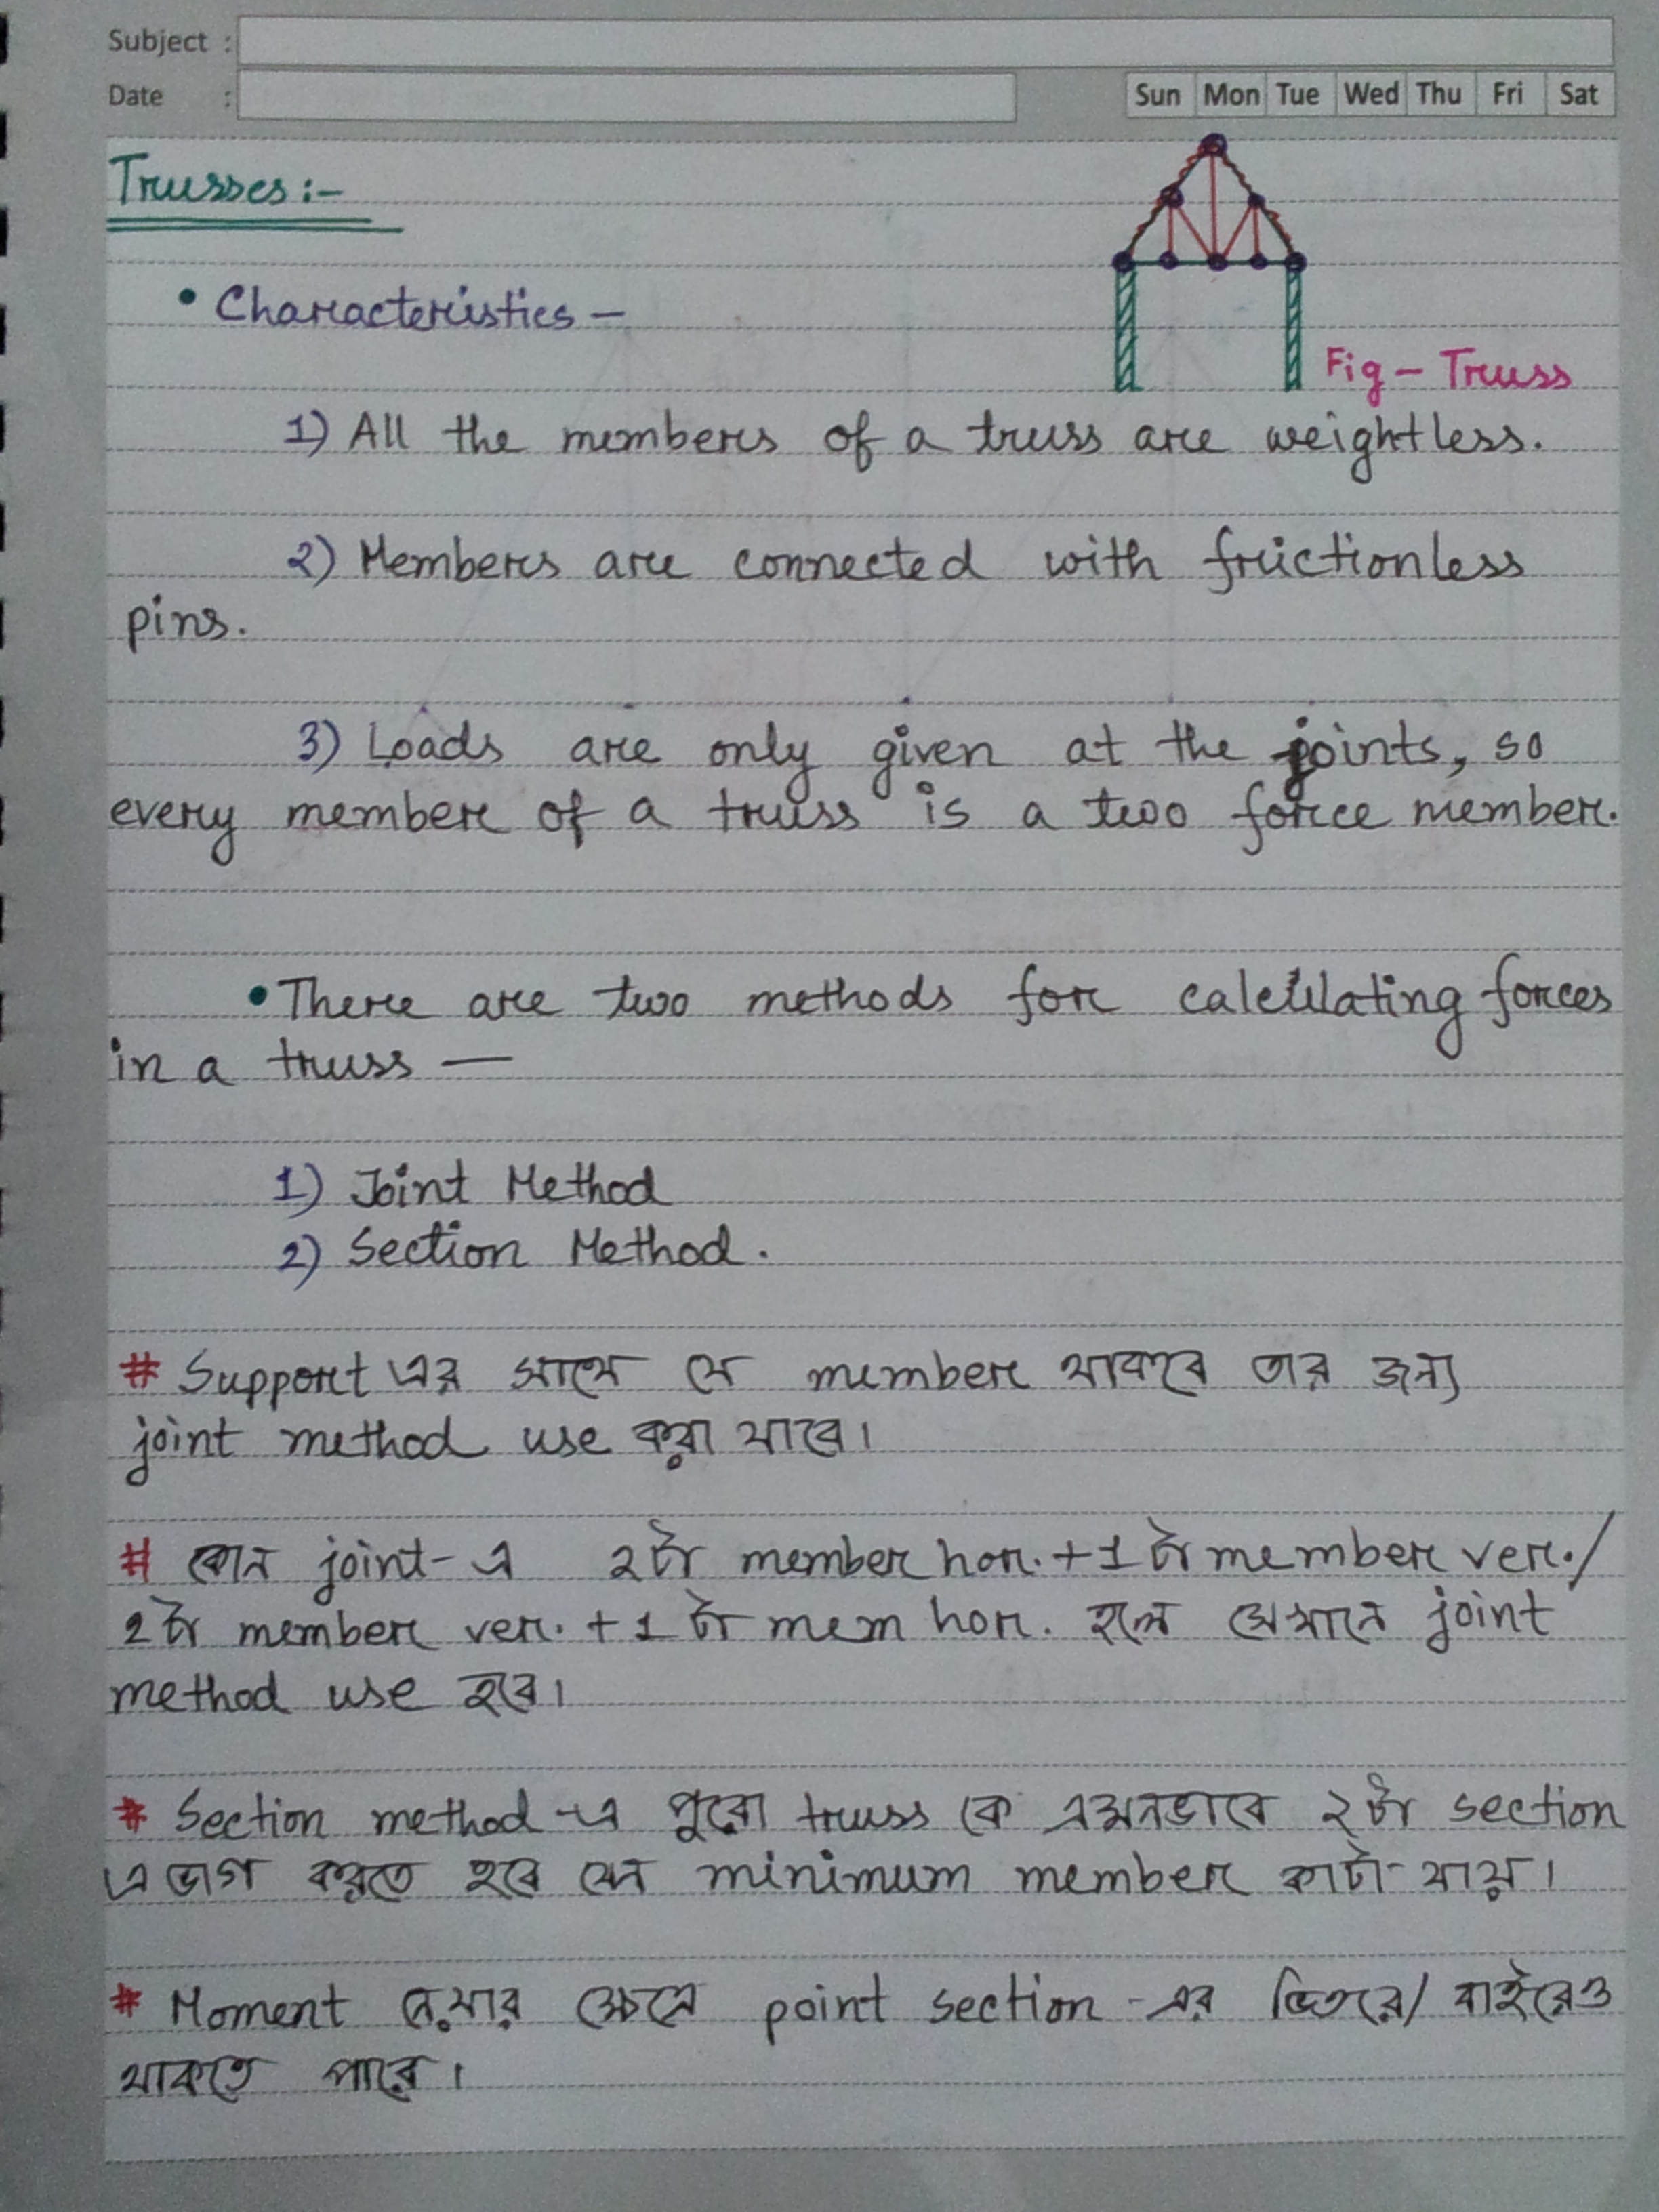 Subject :
Date :
Sun Mon Tue Wed Thu Fri Sat
Trusses :-
• Characteristics —
Fig - Truss
1) All the members of a truss are weightless.
2) Members are connected with frictionless
pins.
3) Loads are only given at the joints, so
every member of a truss is a two force member.
• There are two methods for calculating forces
in a truss —
1) Joint Method
2) Section Method.
# Support এর সাথে যে member থাকবে তার জন্য
joint method use করা যাবে।
# কোন joint-এ ২টা member hor. + 1 টা member ver./
2 টা member ver. + 1 টা mem hor. হলে সেখানে joint
method use হবে।
# Section method -এ পুরো truss কে এমনভাবে ২টা section
এ ভাগ করতে হবে যেন minimum member কাটা যায়।
# Moment নেয়ার ক্ষেত্রে point section -এর ভিতরে/ বাইরেও
থাকতে পারে।